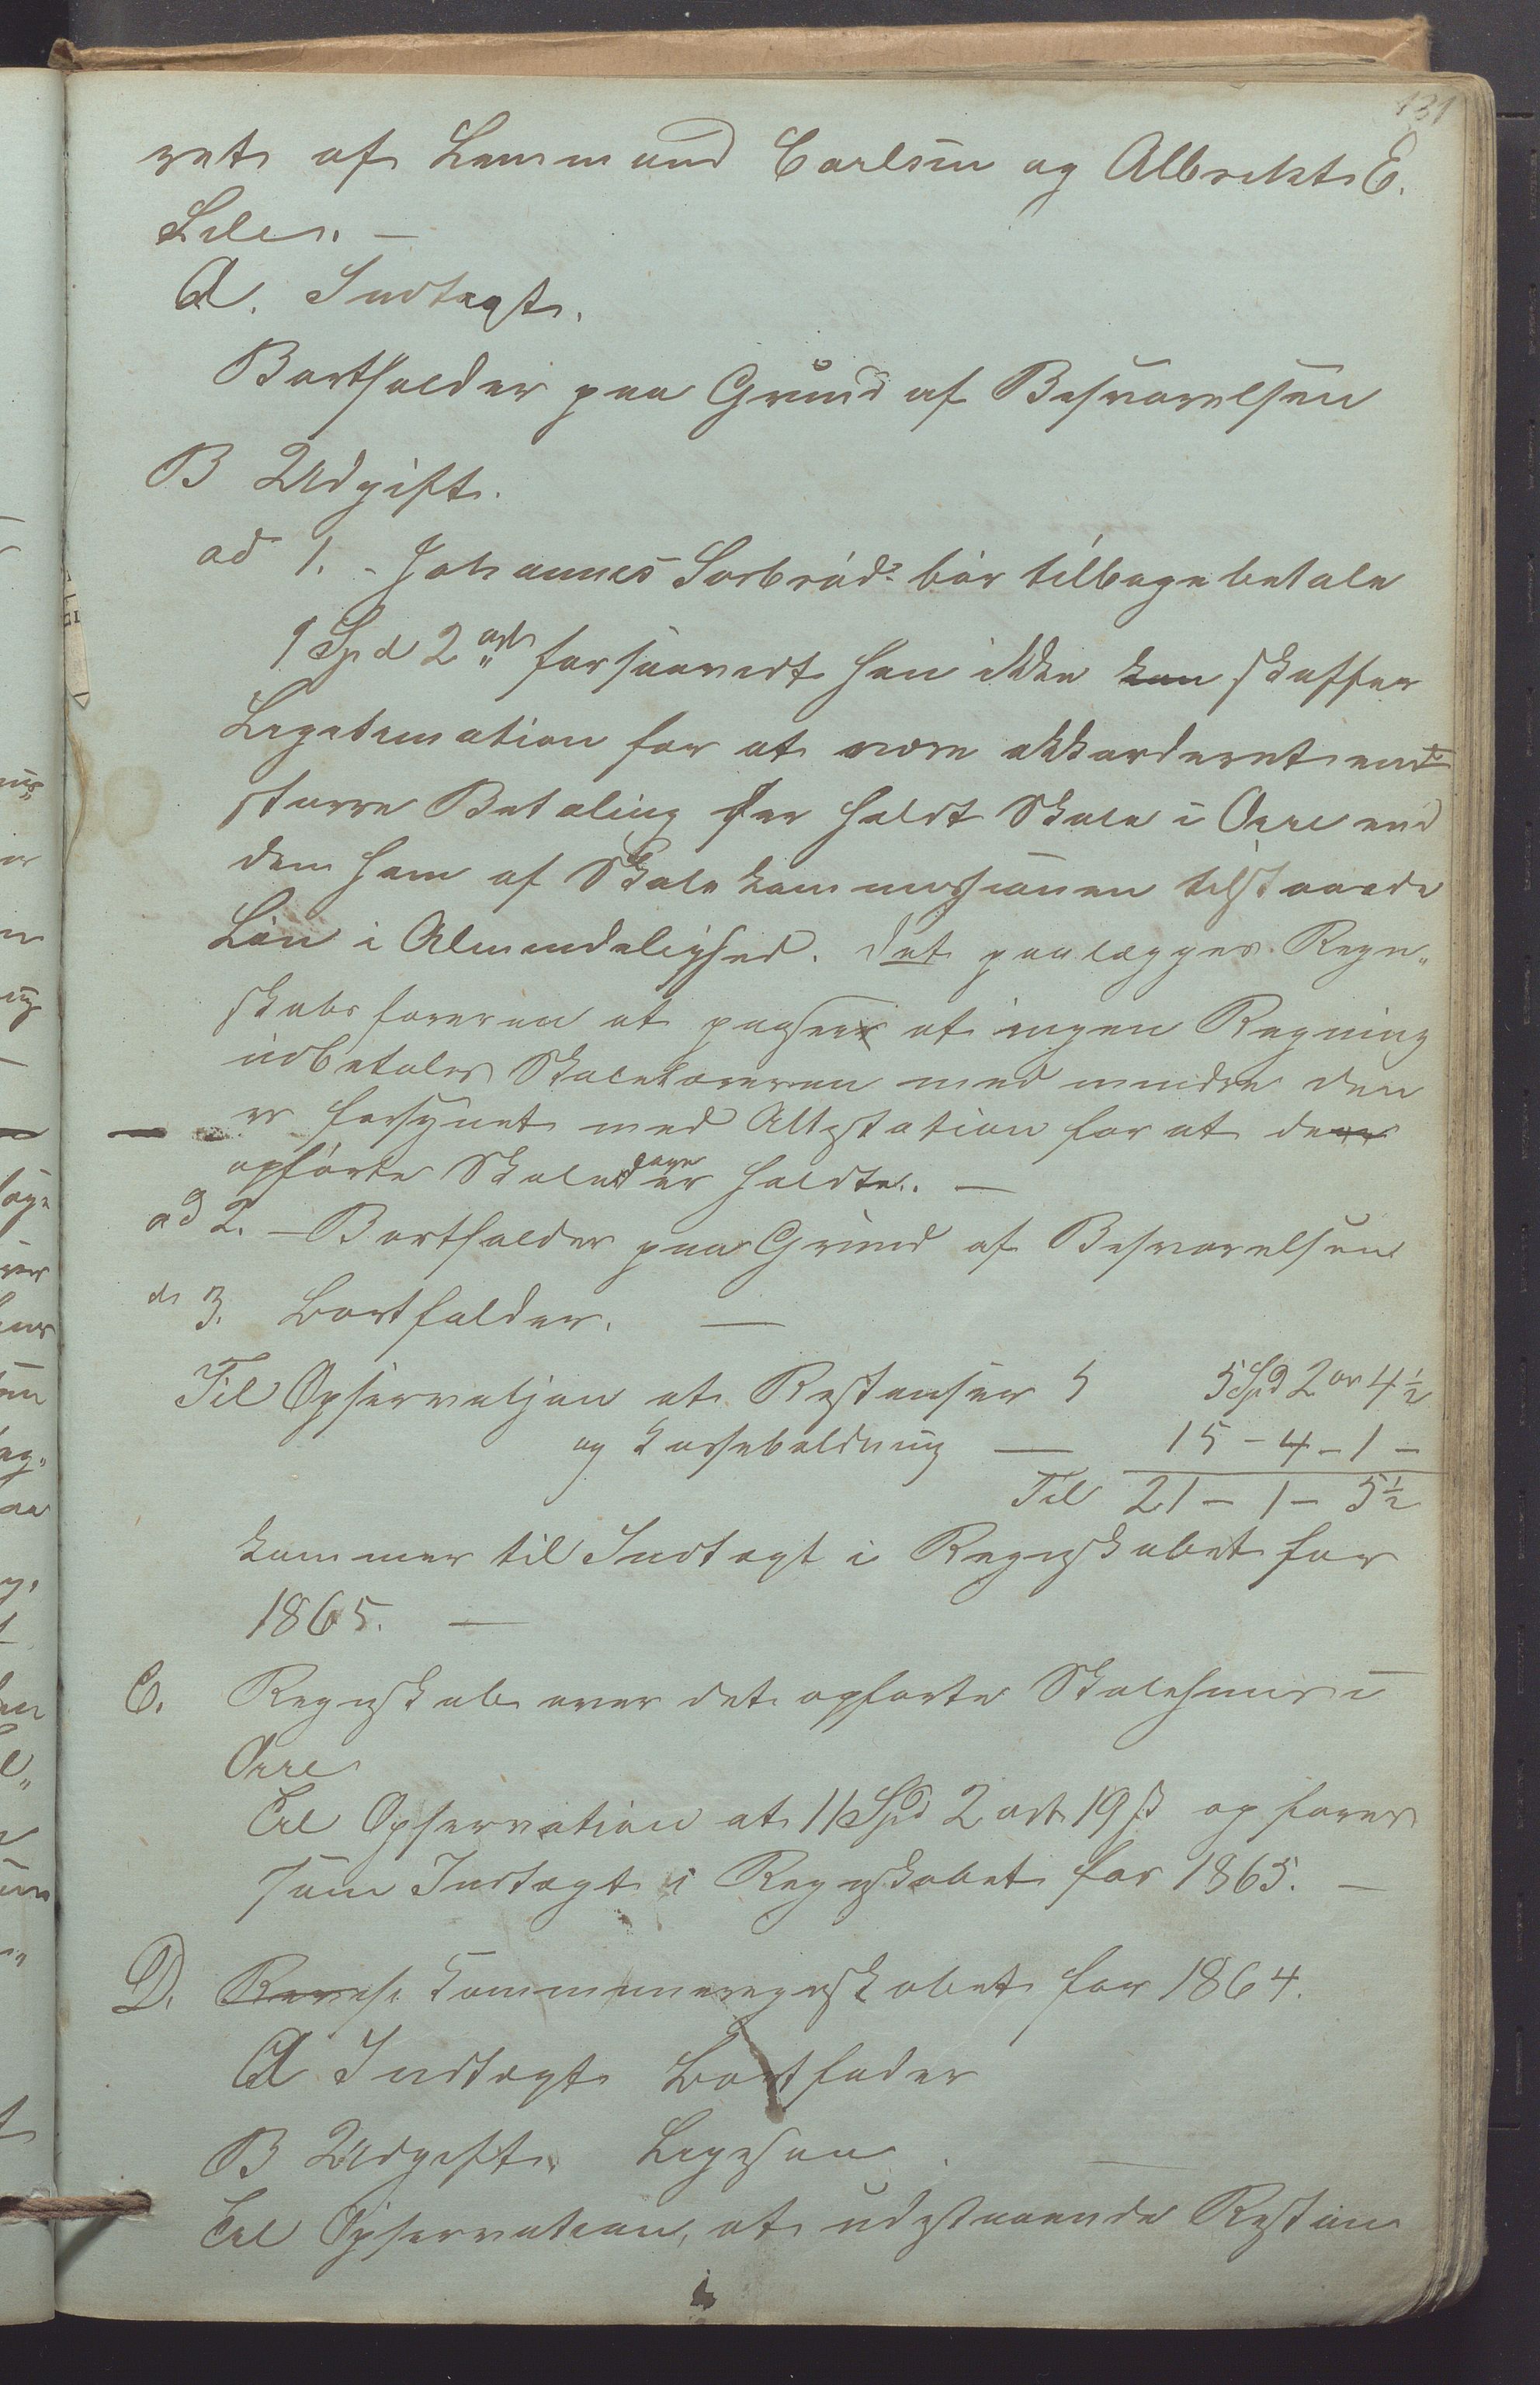 131
ret af Lensmand Carlsen og Albrekt E.
Lele. —
A. Indtægt.
Bortfalder paa Grund af Besvarelsen
B Udgift.
ad 1. - Johannes Sorbröd: bör tilbagebetale
1 Spd 2 ort forsaavidt han ikke kan skaffer
Legetimation for at være akkorderet end
større Betaling for holdt Skole i Orre end
den ham af Skolekommissionen tilstaaede
Lön i Almindelighed. Det paalægges Regn„
skabsføreren at paaseer at ingen Regning
udbetales Skolelæreren med mindre den
er forsynet med Attestation for at den
opførte Skoledage er holdte. —
ad 2. – Bortfalder paa Grund af Besvarelsen
d 3. bortfalder. —
Til Opservasjon at Restanser 5 Spd 2 or 4½
og kassebeholdning — 15 – 4 – 1 –
Til 21 – 1 – 5½
kommer til Indtægt i Regnskabet for
1865. —
C. Regnskab over det opførte Skolehuus i
Orre
Til Opservation at 11 Spd 2 ort 19 ß opføres
som Indtægt i Regnskabet for 1865. —
D. Kommuneregnskabet for 1864.
A Indtægt bortfader
B Udgift. Ligesaa . —
Til Opservation, at udestaaende Restan